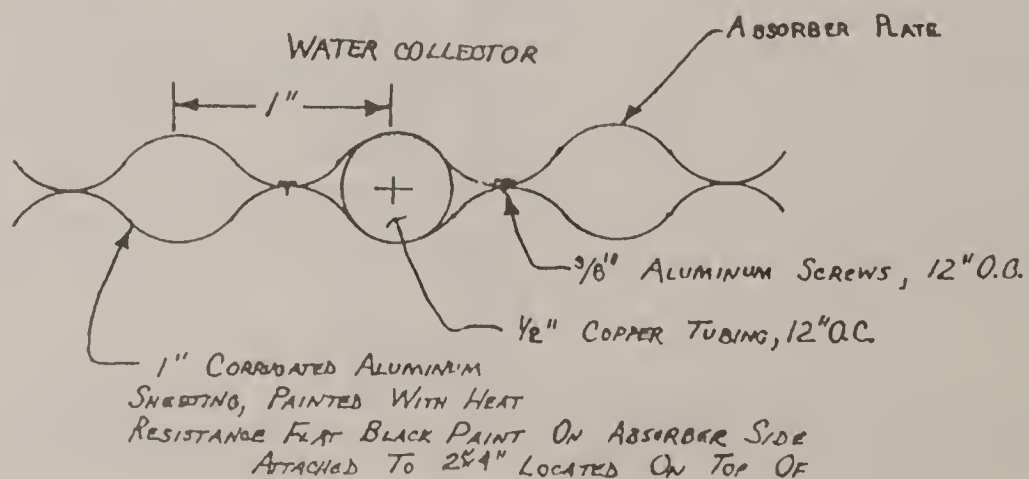 ABSORBER PLATE
WATER COLLECTOR
1"
3/8" ALUMINUM SCREWS, 12" O.C.
1/2" COPPER TUBING, 12" O.C.
1" CORRUGATED ALUMINUM
SHEETING, PAINTED WITH HEAT
RESISTANCE FLAT BLACK PAINT ON ABSORBER SIDE
ATTACHED TO 2"x4" LOCATED ON TOP OF